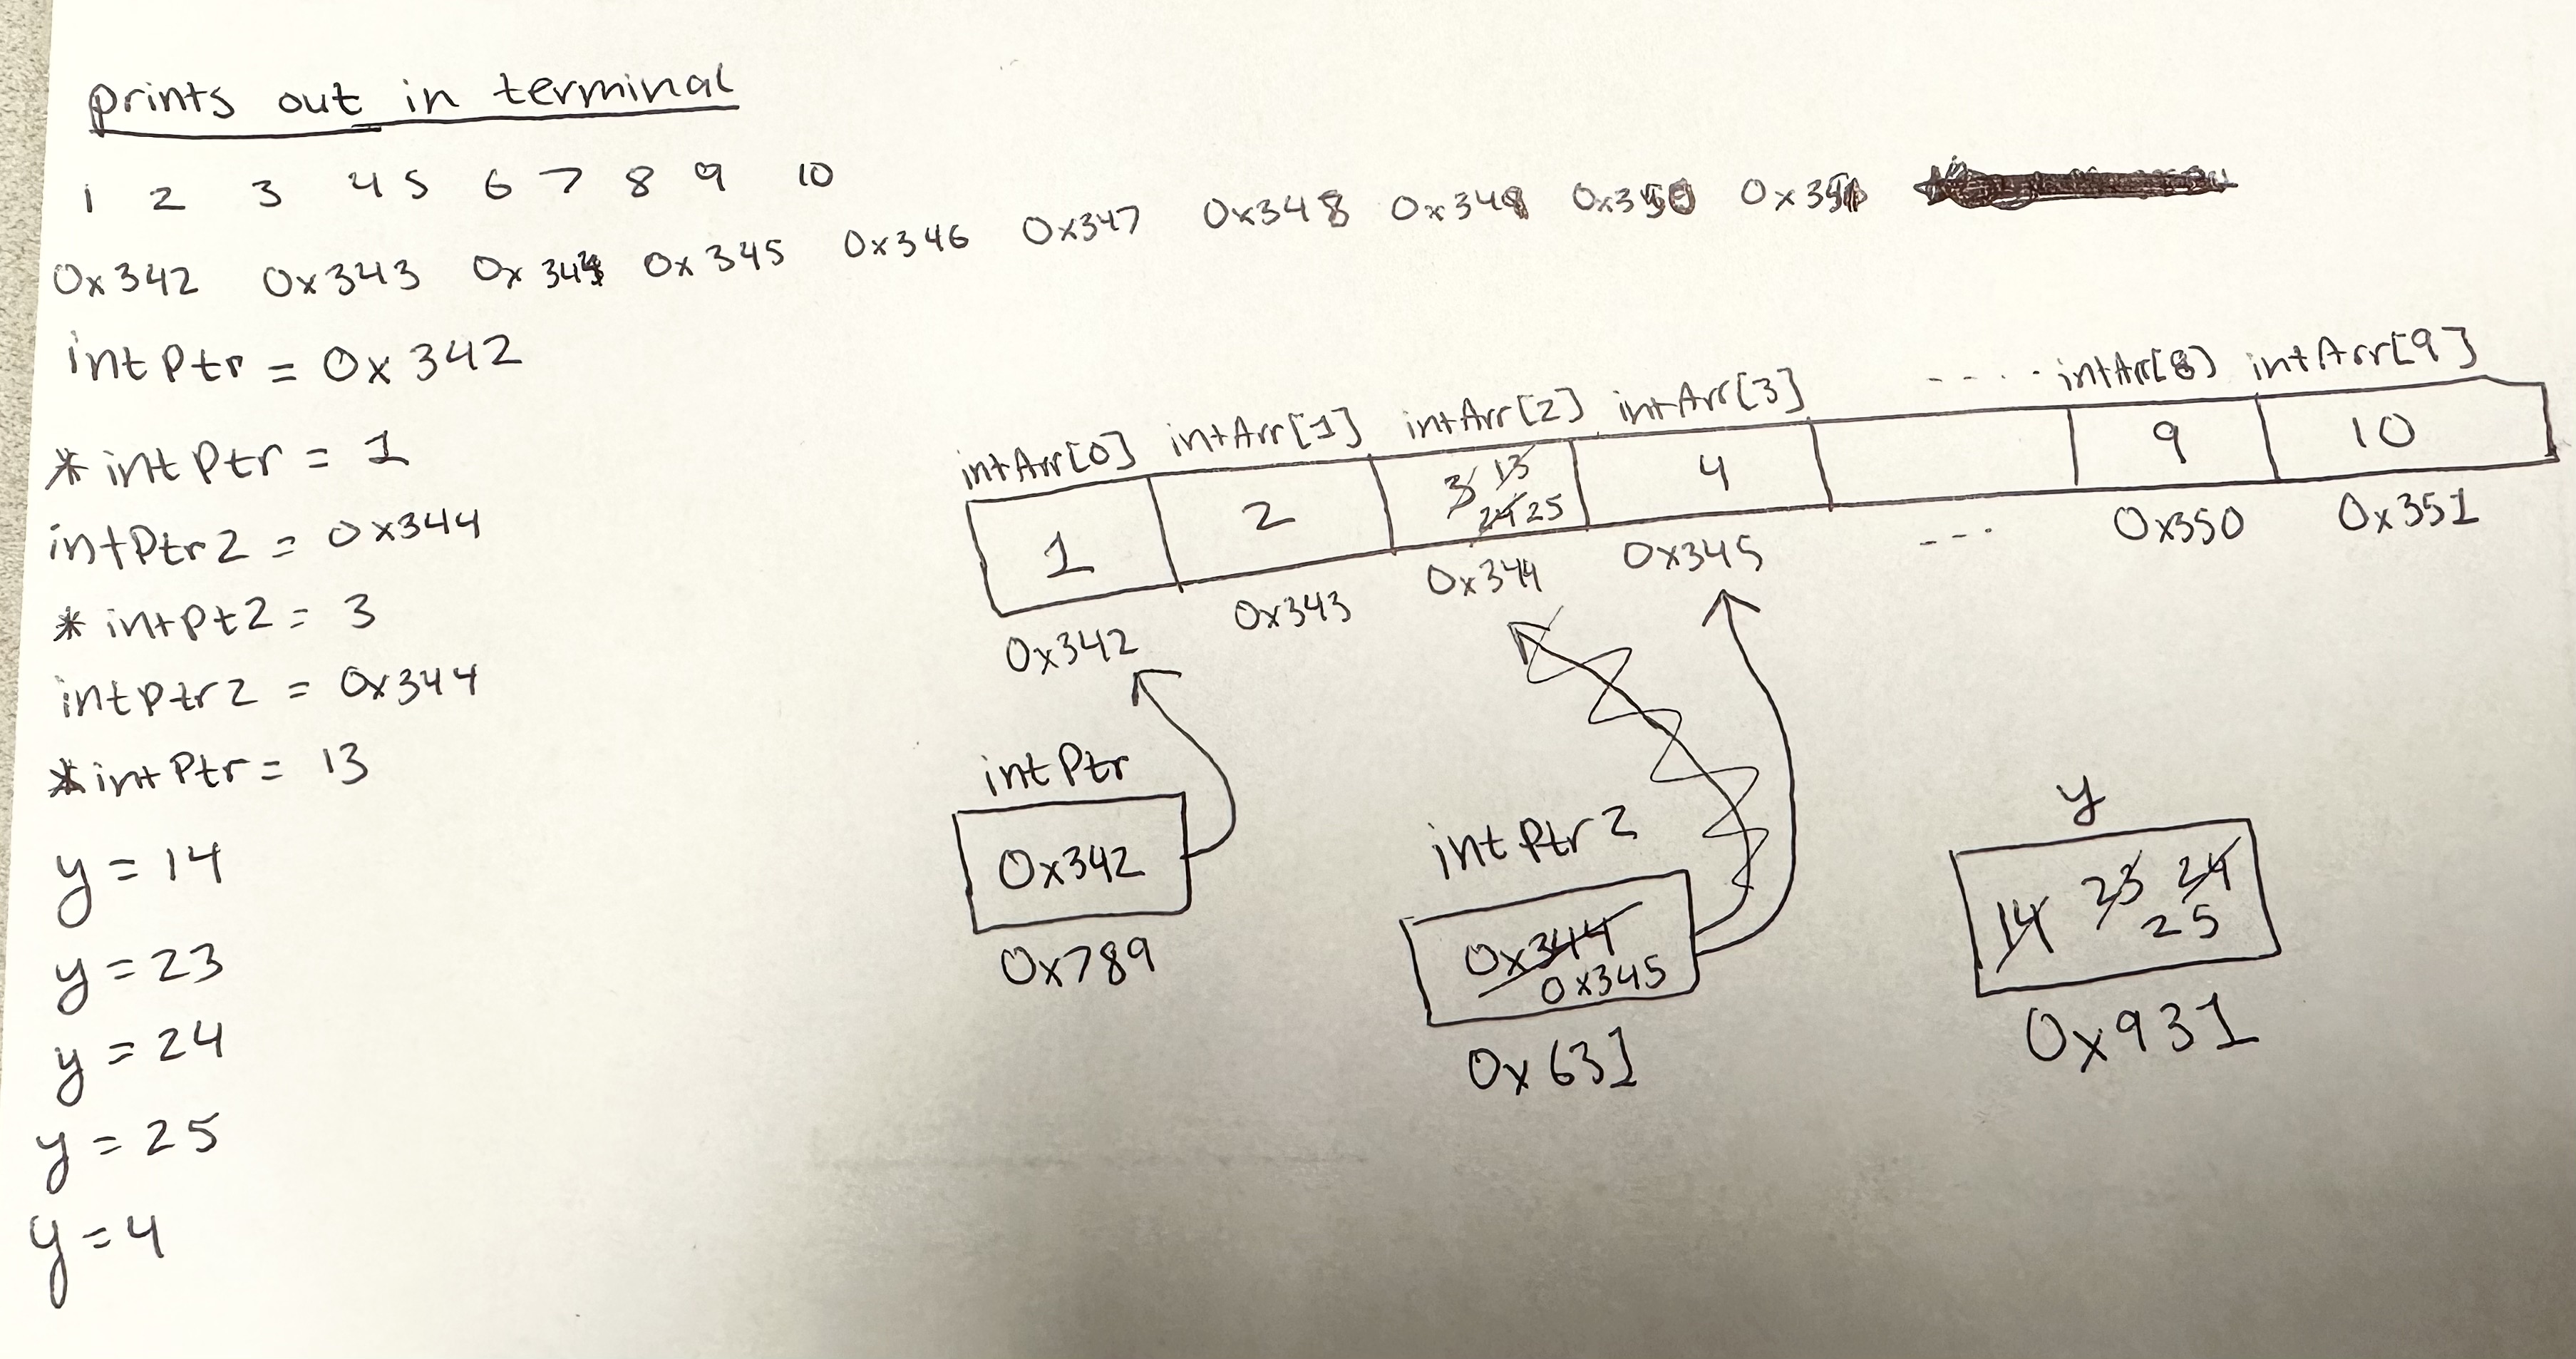 prints out in terminal
1 2 3 4 5 6 7 8 9 10
0x342 0x343 0x344 0x345 0x346 0x347 0x348 0x349 0x350 0x351
intPtr = 0x342
*intPtr = 1
intPtr2 = 0x344
*intPt2 = 3
intptr2 = 0x344
*intPtr = 13
y = 14
y = 23
y = 24
y = 25
y = 4
intArr[0] intArr[1] intArr[2] intArr[3] ---- intArr[8] intArr[9]
1 2 3 13 4 9 10
24 25
0x342 0x343 0x344 0x345 --- 0x350 0x351
intPtr
0x342
0x789
intPtr2
0x344
0x345
0x631
y
14 23 24
25
0x931